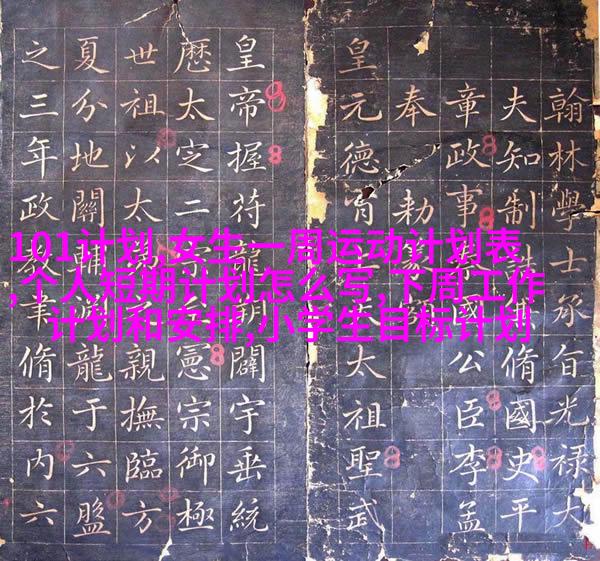 翰林學士承旨光祿大
夫知制誥脩國史平
章政事國公臣李孟
奉勑
皇元德冑太祖聖武
皇帝握符龍闢宇垂統
厯太㝎二宗憲宗御極
世祖以太親撫臨方
夏分地關輔龍于六盤
之三年政教肇脩於內六
101计划,女生一周运动计划表
,个人短期计划怎么写,下周工作
计划和安排,小学生目标计划